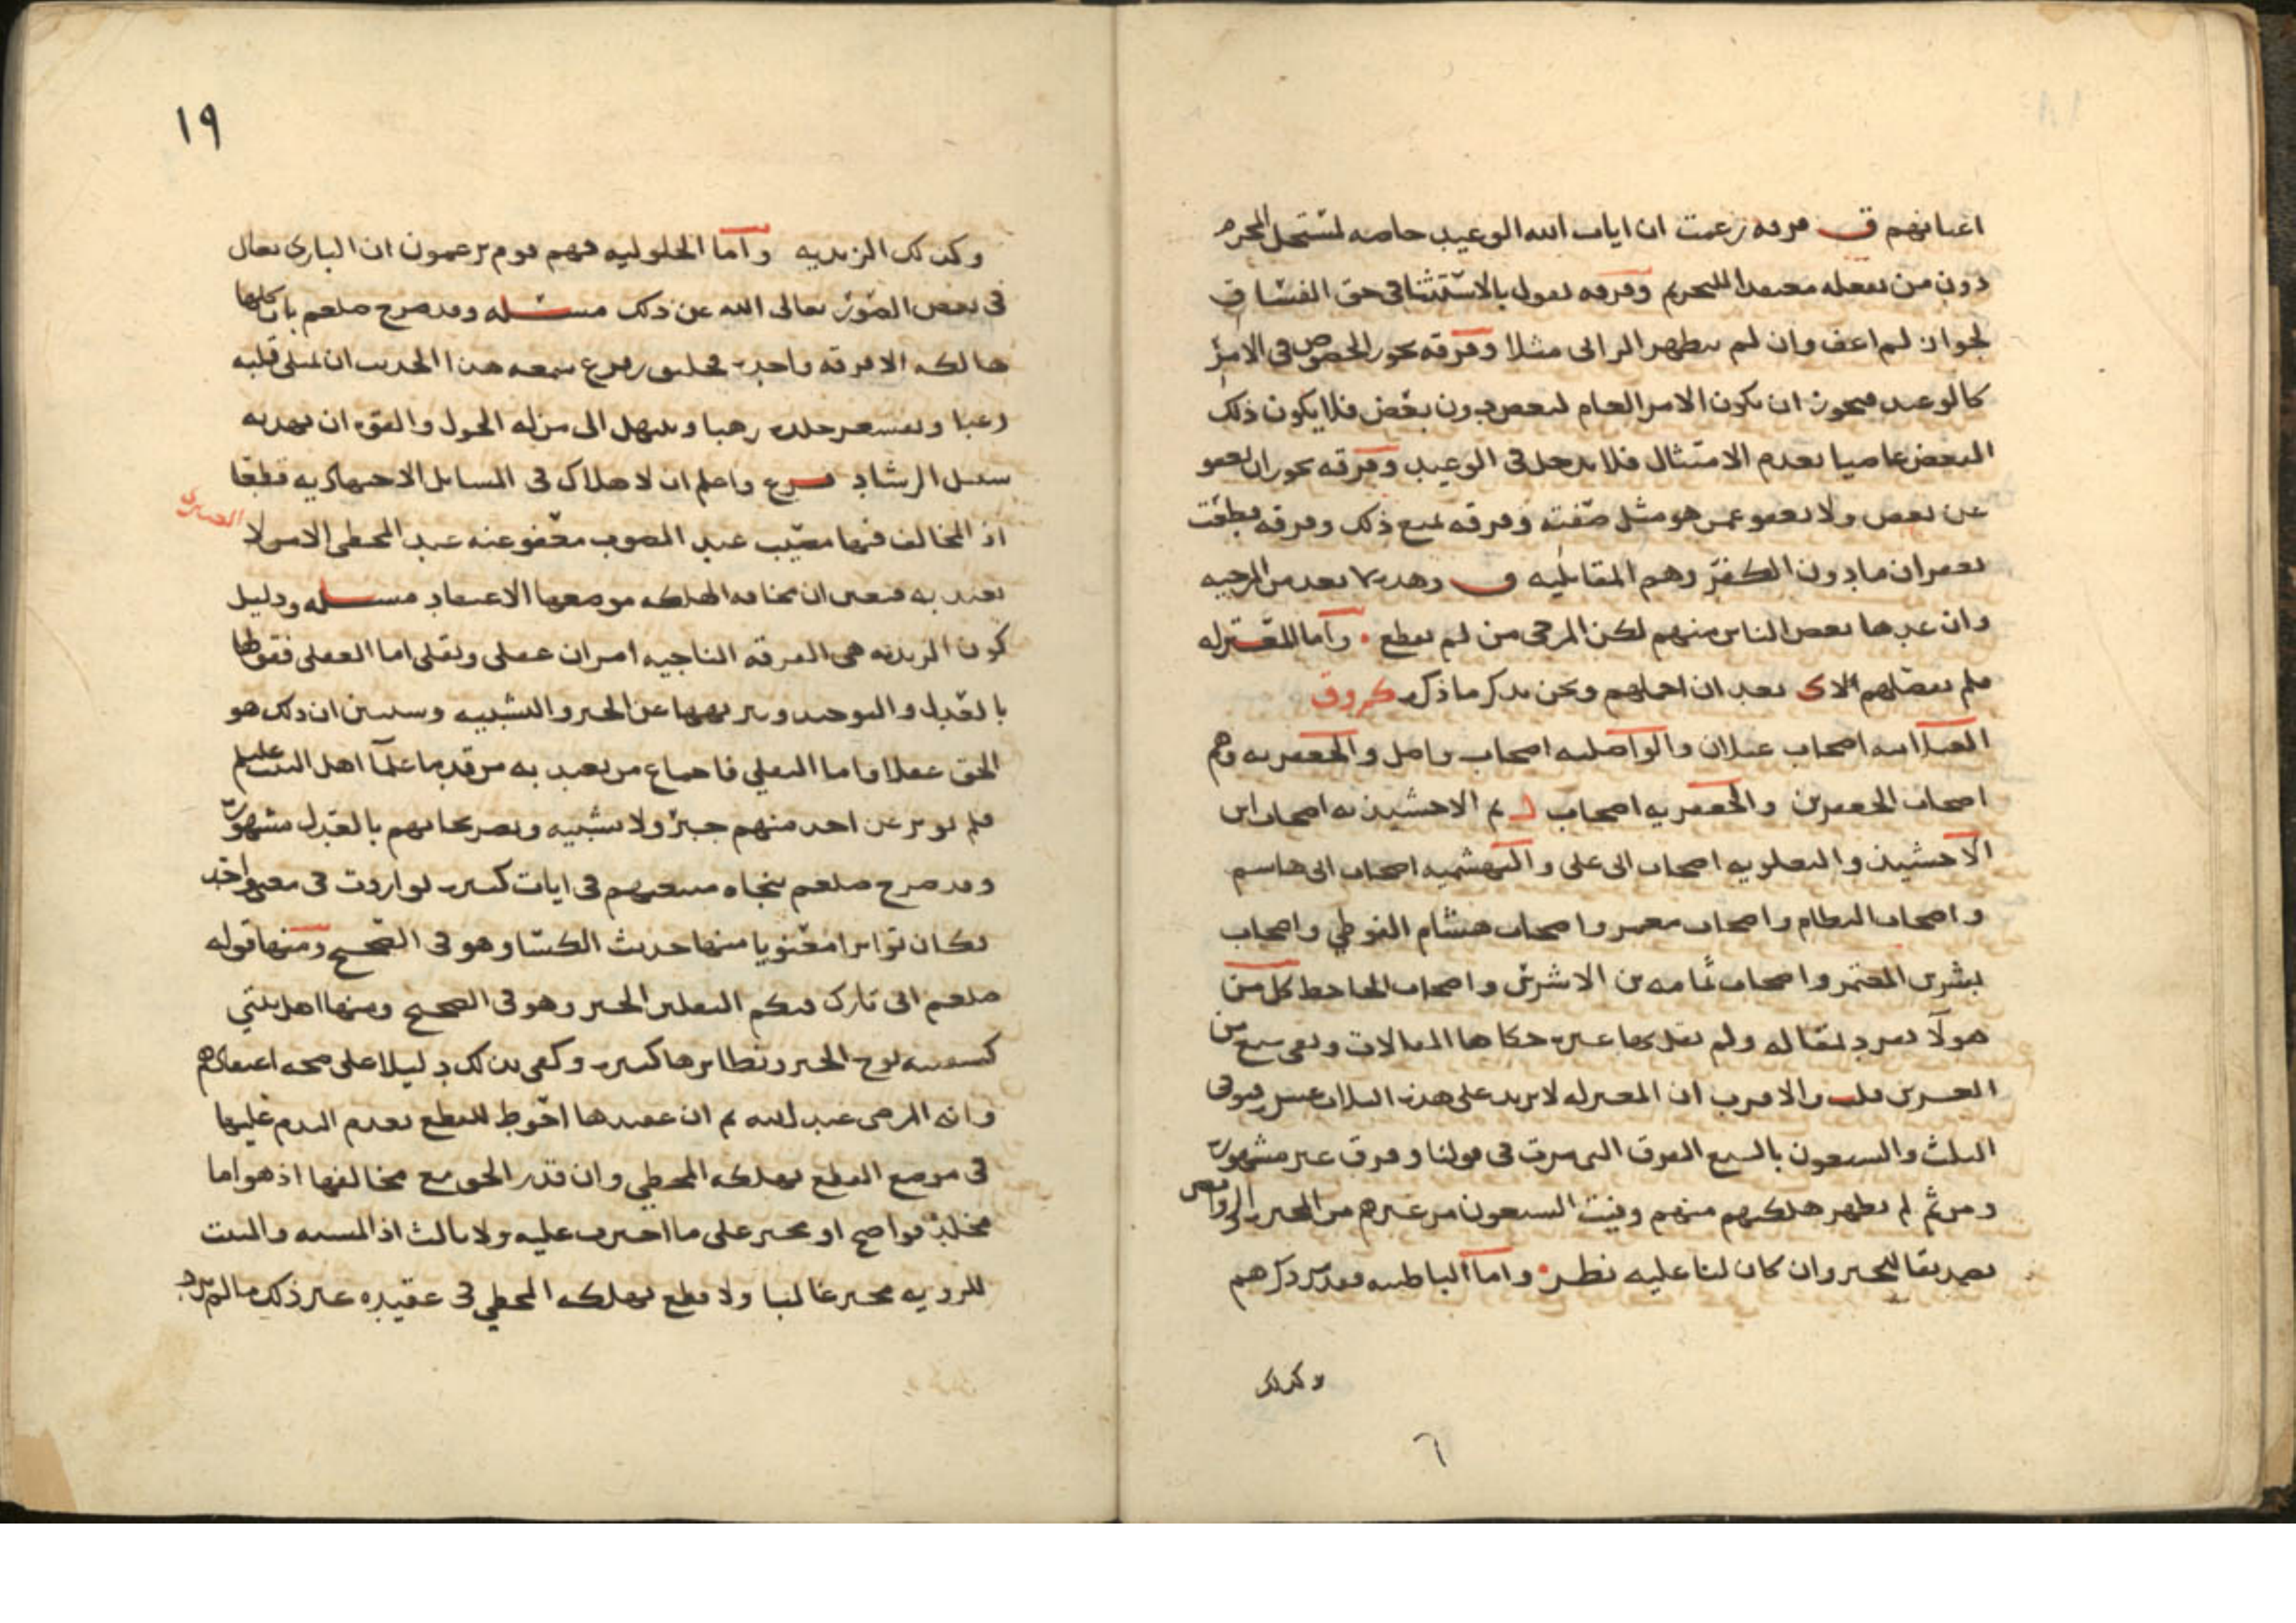 اعيانهم ق فرقة زعمت ان ايات الله الوعيد خاصه لمستحل المحرم
دون من يفعله معتقدا للتحريم وفرقه تقول بالاستثنا فى حق الفساق
لجواز لم اعف وان لم يظهر الرائى مثلا وفرقه تجوز الخصوص فى الامر
كالوعيد فيجوز ان يكون الامر العام لبعض دون بعض فلا يكون ذلك
البعض عاصيا بعدم الامتثال فلا يدخل فى الوعيد وفرقه تجوز ان يعفو
عن بعض ولا يعفو عمن هو مثل صفته وفرقه تمنع ذلك وفرقه قطعت
بغفران ما دون الكفر وهم المقاتليه وهذه لا تعد من المرجيه
وان عدها بعض الناس منهم لكن المرجى من لم يقطع وأما المعتزله
فلم يفصلهم بعد ان اجملهم ونحن نذكر ما ذكره
الغيلانيه اصحاب غيلان والواصليه اصحاب واصل والجعفريه وهم
اصحاب الجعفرين والجعفريه اصحاب ثم الاخشيذيه اصحاب ابن
الاخشيذ والبعلويه اصحاب ابى على والبهشميه اصحاب ابى هاشم
واصحاب النظام واصحاب معمر واصحاب هشام الفوطي واصحاب
بشر بن المعتمر واصحاب ثمامه بن الاشرس واصحاب الجاحظ كل من
هولآ تفرد بمقاله ولم حكاها المقالات وبقى سبع من
العشرين قلت والاقرب ان المعتزله لا يزيد على هذه الثلاث عشر فيوفى
الثلث والسبعون بالسبع الفرق التى مرت فى قولنا وفرق غير مشهوره
ومن ثم لم يظهر هلكهم منهم وفيت السبعون من غيرهم من المجبره والروافض
تصديقا للخبر وان كان لنا عليه نظر واما الباطنيه فقد مر ذكرهم
وكذلك
٦
١٩
وكذلك الزيديه وأما الحلوليه فهم قوم يزعمون ان البارى تعالى
فى بعض الصور تعالى الله عن ذلك مسئله وقد صرح صلعم بان كلها
هالكه الا فرقه واحده فحقيق سمعه هذا الحديث ان يمتلى قلبه
رعبا ويقشعر جلده رهبا ويبتهل الى من له الحول والقوه ان يهديه
سبيل الرشاد فرع واعلم ان لا هلاك فى المسائل الاجتهاديه قطعا
اذ المخالف فيها مصيب عند المصوب معفو عنه عند المخطى الا من لا
يعتد به فتعين ان مخافه الهلكه موضعها الاعتقاد مسئله ودليل
كون الزيديه هى الفرقه الناجيه امران عقلى ونقلى اما العقلى فقولها
بالعدل والتوحيد وتنزيهها عن الجبر والتشبيه وسنبين ان ذلك هو
الحق عقلا واما النقلي فاجماع من يعتد به من قدما علمآ اهل البيت عليلم
فلم يوثر عن احد منهم جبر ولا تشبيه وتصريحاتهم بالعدل مشهوره
وقد صرح صلعم بنجاه متبعهم فى ايات كثيره تواردت فى معنى واحد
فكان تواترا معنويا منها حديث الكسا وهو فى الصحيح ومنها قوله
صلعم انى تارك فيكم الثقلين الخبر وهو فى الصحيح ومنها اهل بيتي
كسفينه نوح الخبر ونظايرها كثيره وكفى بذلك دليلا على صحه اعتقادهم
وانه المرضى عند الله ثم ان عقيدتها احوط للقطع بعدم الذم عليها
فى موضع القطع بهلكه المخطي وان قدر الحق مع مخالفها اذ هو اما
مخلد فواضح او مجبر على ما اجبرت عليه ولا ثالث اذ المشبه والمثبت
للرويه مجبر غالبا ولا قطع بهلكه المخطي فى عقيده غير ذلك ما لم